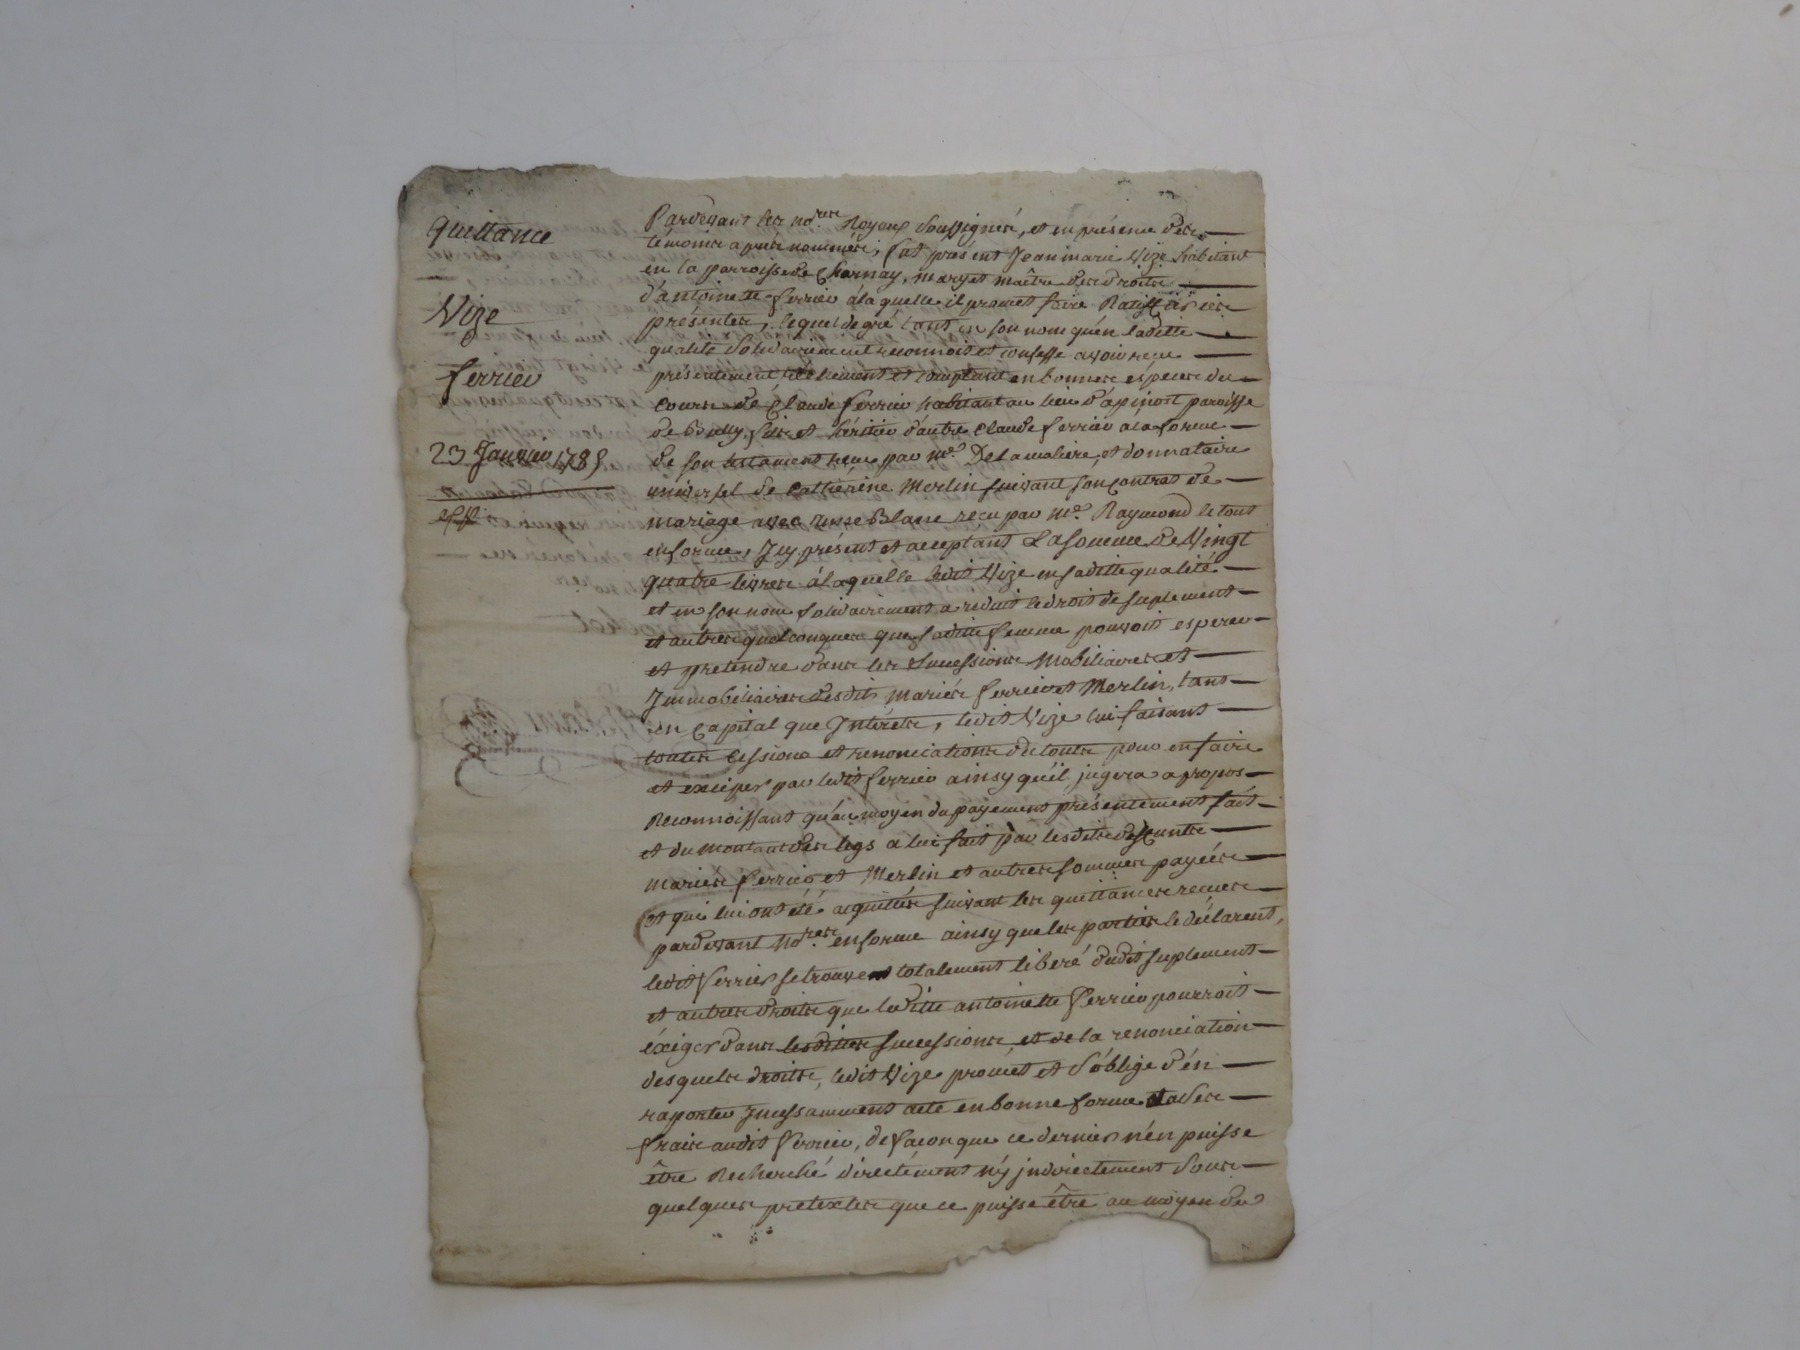 quittance
Vize
ferrier
23 Janvier 1785
Pardevant les nores Royaux Soussignés, et en présence des
témoins après nommés, fut présent Jean marie Vize habitant
en la parroisse de Charnay, mary et maître des droits
d'antoinette ferrier à laquelle il promet faire Ratiffier ces
présentes, lequel de gré tant en son nom qu'en ladette
qualité solidairement reconnoit et confesse avoir reçu
présentement réellement et comptant en bonnes espèces du
cours de Claude ferrier habitant au lieu d'apinost paroisse
de Bully fils et héritier d'autre Claude ferrier a la forme
de son testament reçu par me. Delavaliere, et donnataire
universel de Catherine Merlin suivant son Contrat de
mariage avec Blanc reçu par me. Raymond le tout
en forme, Icy présent et acceptant La somme de Vingt
quatre livres à laquelle ledit Vize en saditte qualité
et en son nom solidairement a reduit le droit de suplement
et autres quelconques que saditte femme pouvoit esperer
et pretendre dans les successions Mobiliaires et
Immobiliaires desdits mariés ferrier et Merlin, tant
en Capital que Intérêts, ledit Vize lui faisant
toutes Cessions et renonciations du tout pour en faire
et exciper par ledit ferrier ainsy qu'il jugera a propos
Reconnoissant qu'au moyen du payement présentement fait
et du montant des legs a lui fait par lesdits deffunts
mariés ferrier et Merlin et autres sommes payées
et qui lui ont été acquittés suivant les quittances reçues
pardevant Nores en forme ainsy que les parties le déclarent,
ledit ferrier se trouve totalement libéré dudit suplement
et autres droits que laditte antoinette ferrier pourroit
éxiger dans lesdittes successions et de la renonciation
desquels droits, ledit Vize promet et s'oblige d'én
raporter Incessamment acte en bonne forme et a ses
frais audit ferrier, de façon que ce dernier n'en puisse
être Recherché directément n'y jndirectement sous
quelques pretextes que ce puisse être au moyen de